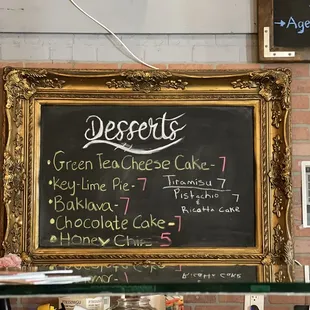 Age
Desserts
• Green Tea Cheese Cake - 7
• Key-Lime Pie - 7
• Baklava - 7
• Chocolate Cake - 7
• Honey 5
Tiramisu 7
Pistachio
& 7
Ricotta Cake
Ricotta CAKE